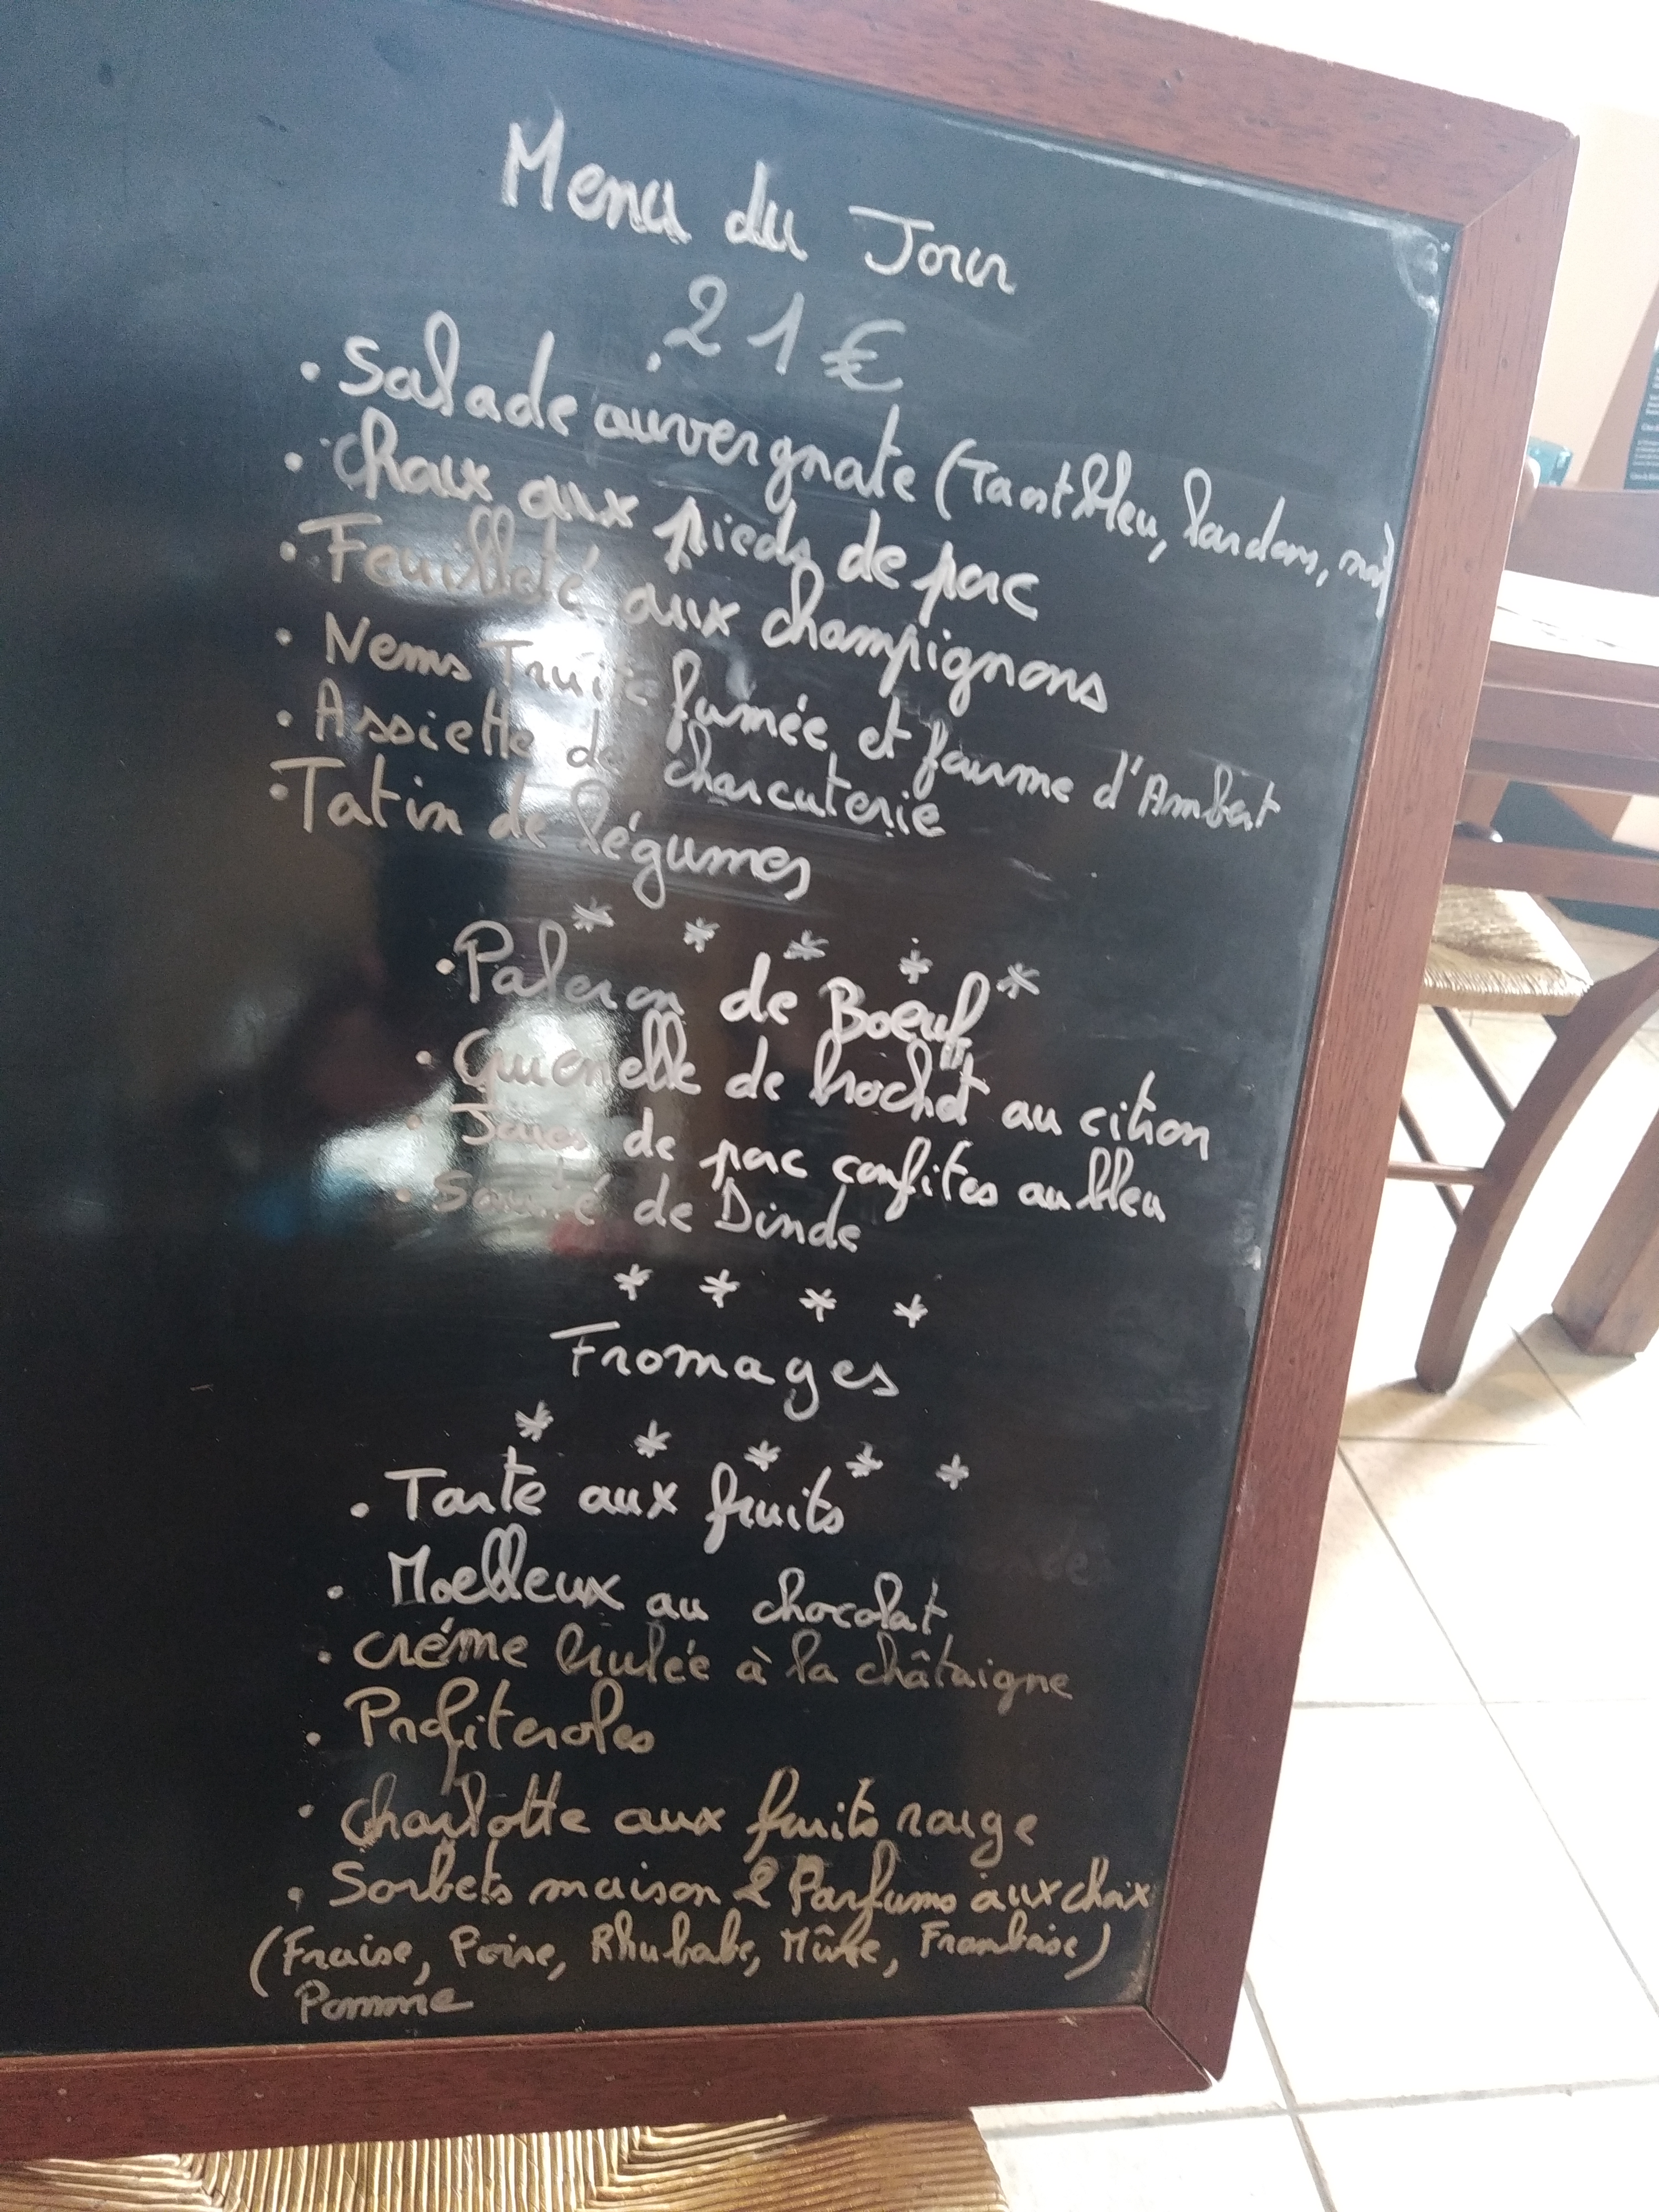 Menu du Jour
21€
• Salade auvergnate (Toast bleu, lardons, noix)
• Choux aux pieds de porc
• Feuilleté aux champignons
• Nems Truite fumée et fourme d'Ambert
• Assiette de charcuterie
• Tatin de légumes
* * * * *
• Paleron de Boeuf
• Quenelle de brochet au citron
• Joues de porc confites au bleu
• Sauté de Dinde
* * * *
Fromages
* * * * *
• Tarte aux fruits
• Moelleux au chocolat
• Créme brulée à la châtaigne
• Profiteroles
• Charlotte aux fruits rouge
• Sorbets maison 2 Parfums aux choix
(Fraise, Poire, Rhubabe, Mûre, Framboise)
Pomme